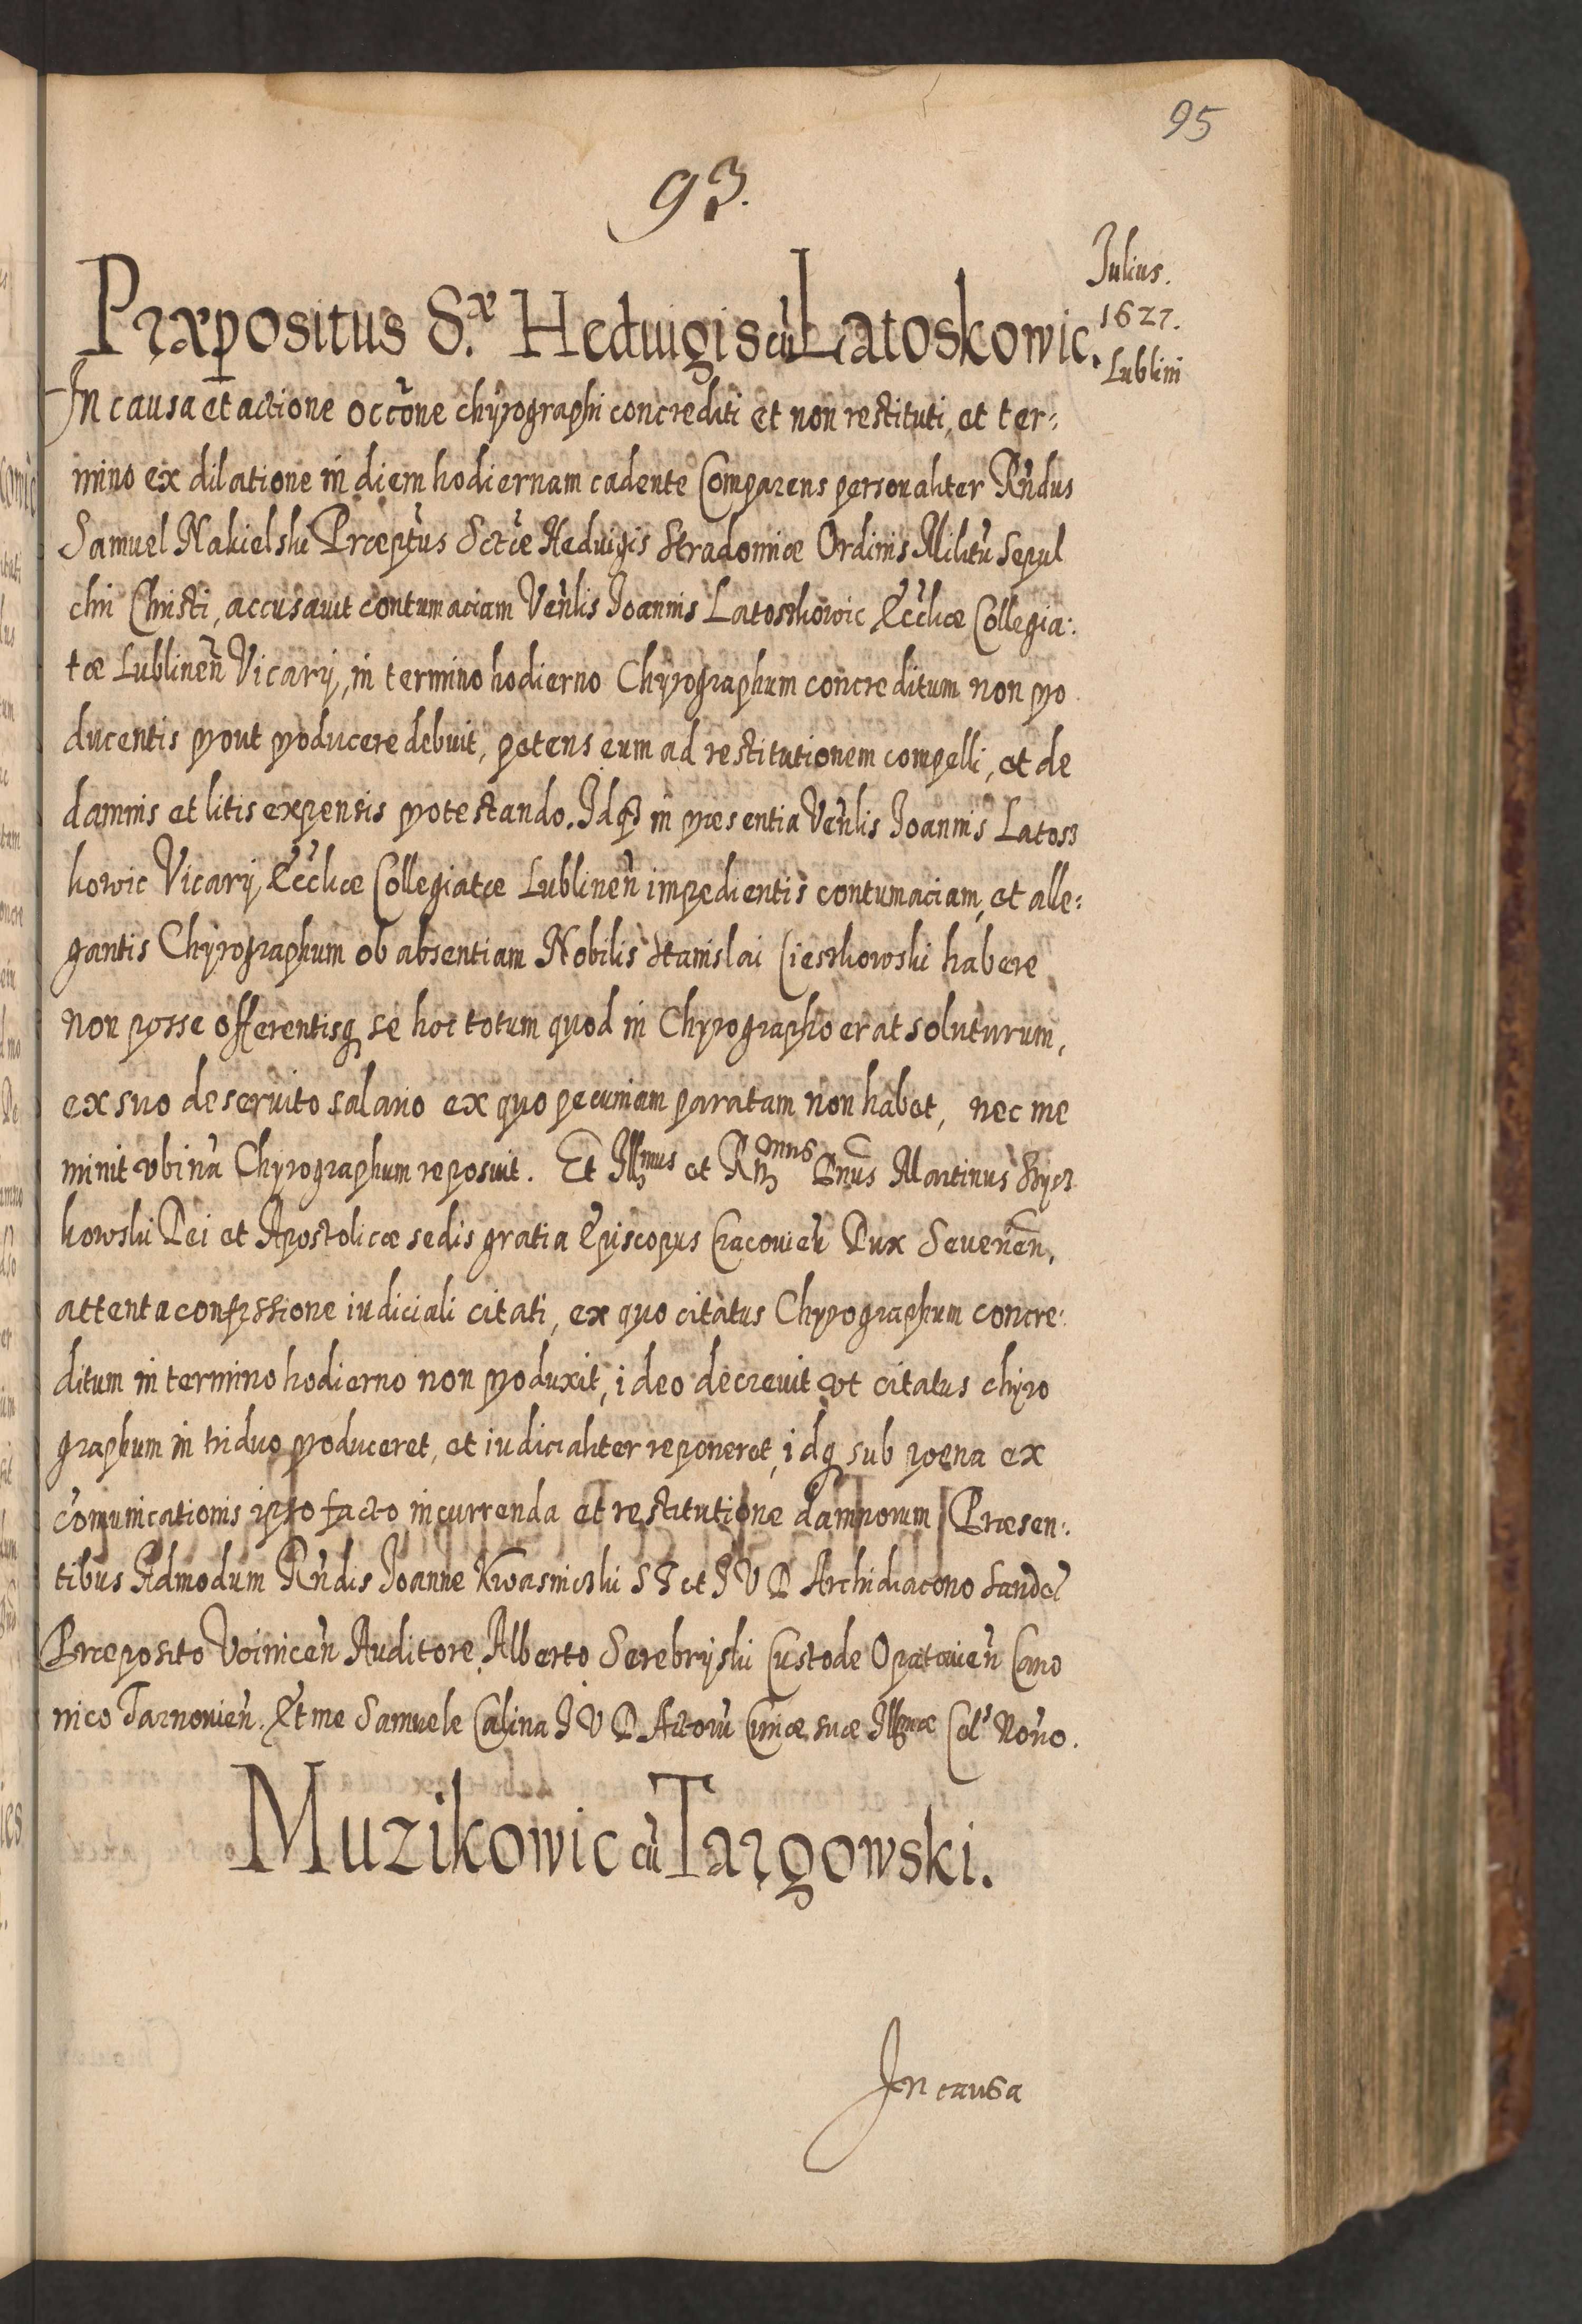 95
93.
Julius.
1627.
Lublini
Præpositus S.æ Hedvigis cũ Latoskowic.
In causa et actione occõne chyrographi concrediti et non restituti, et ter:
mino ex dilatione in diem hodiernam cadente Comparens personaliter Rñdus
Samuel Nakielski Præptus Sctæ Hedvigis Stradomiæ Ordinis Militũ Sepul
chri Christi, accusavit contumaciam Veñlis Joannis Latoszkowic Ecclæ Collegia:
tæ Lublineñ Vicarij, in termino hodierno Chyrographum concreditum non pro
ducentis prout producere debuit, petens eum ad restitutionem compelli, et de
damnis et litis expensis protestando. Idq3 in præsentia Veñlis Joannis Latosz
kowic Vicarij Ecclæ Collegiatæ Lublineñ impedientis contumaciam, et alle:
gantis Chyrographum ob absentiam Nobilis Stanislai Cieszkowski habere
non posse offerentisq se hoc totum quod in Chyrographo erat soluturum,
ex suo deservito salario ex quo pecuniam paratam non habet, nec me
minit vbinã Chyrographum reposuit. Et Illmus et Rñmus Dnus Martinus Szysz
kowski Dei et Apostolicæ sedis gratia Episcopus Cracovieñ Dux Severieñ,
attenta confessione iudiciali citati, ex quo citatus Chyrographum concre:
ditum in termino hodierno non produxit, ideo decrevit vt citatus chyro
graphum in triduo produceret, et iudicialiter reponeret, idq sub poena ex
cõmunicationis ipso facto incurrenda et restitutione damnorum Præsen:
tibus Admodum Rñdis Joanne Kwasnicski S T et J V D Archidiacono Sandeč
Præposito Voiniceñ Auditore, Alberto Serebryski Custode Opatovieñ Cano
nico Tarnovieñ. Et me Samuele Calina J V D Actorũ Curiæ suæ Illmæ Cels Noño.
Muzikowic cũ Targowski.
In causa